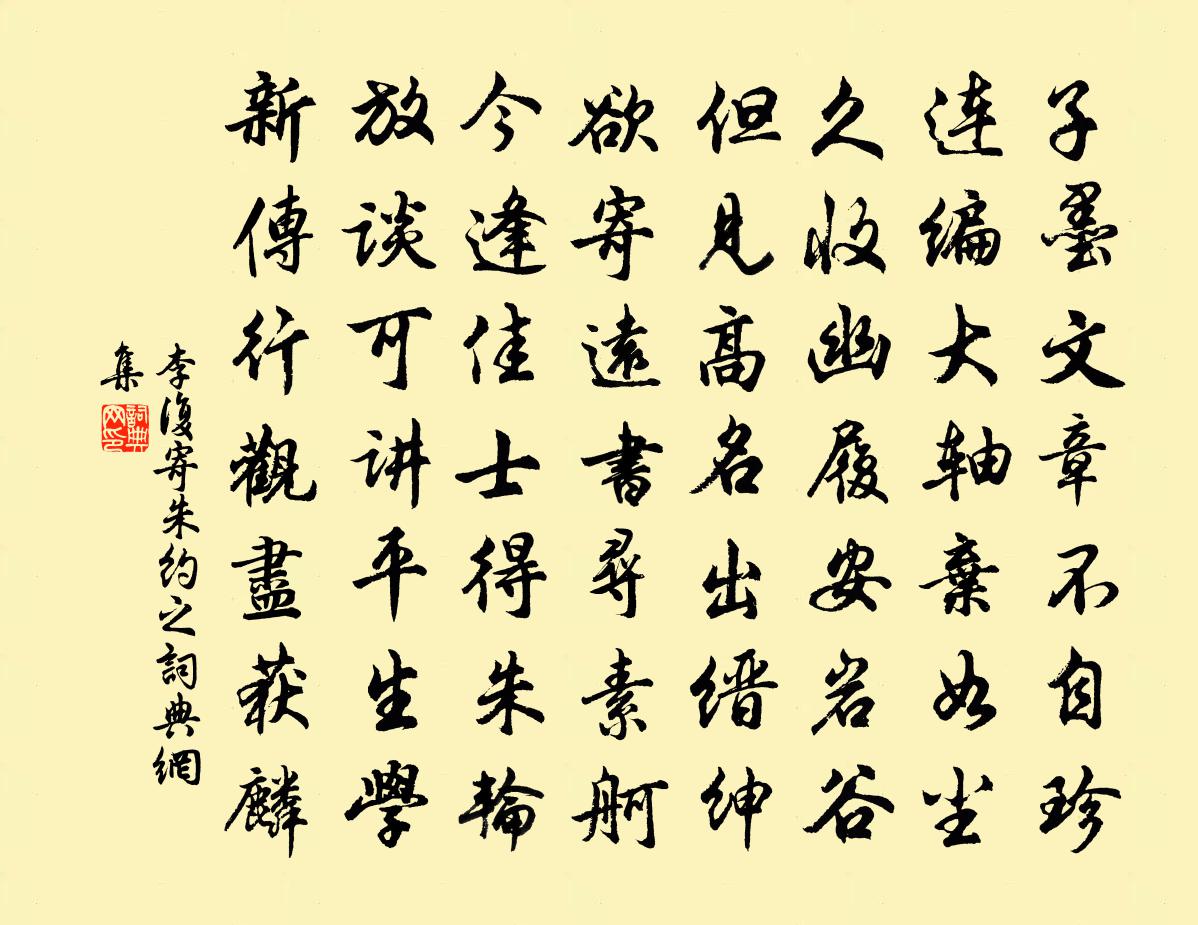 子墨文章不自珍
連编大轴棄如尘
久收幽履安岩谷
但見高名出缙绅
欲寄遠書尋素舸
今逢佳士得朱輪
放談可讲平生學
新傳行觀盡获麟
李復寄朱约之詞典網
集
詞典网印